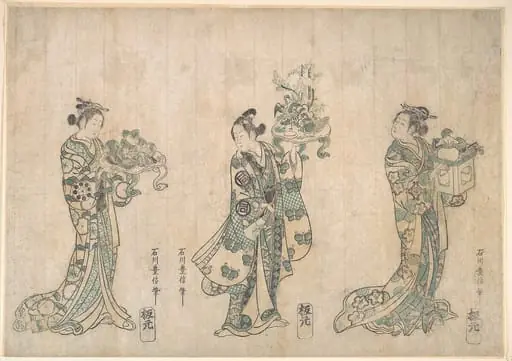 石川豊信筆
板元
石川豊信筆
板元
石川豊信筆
板元